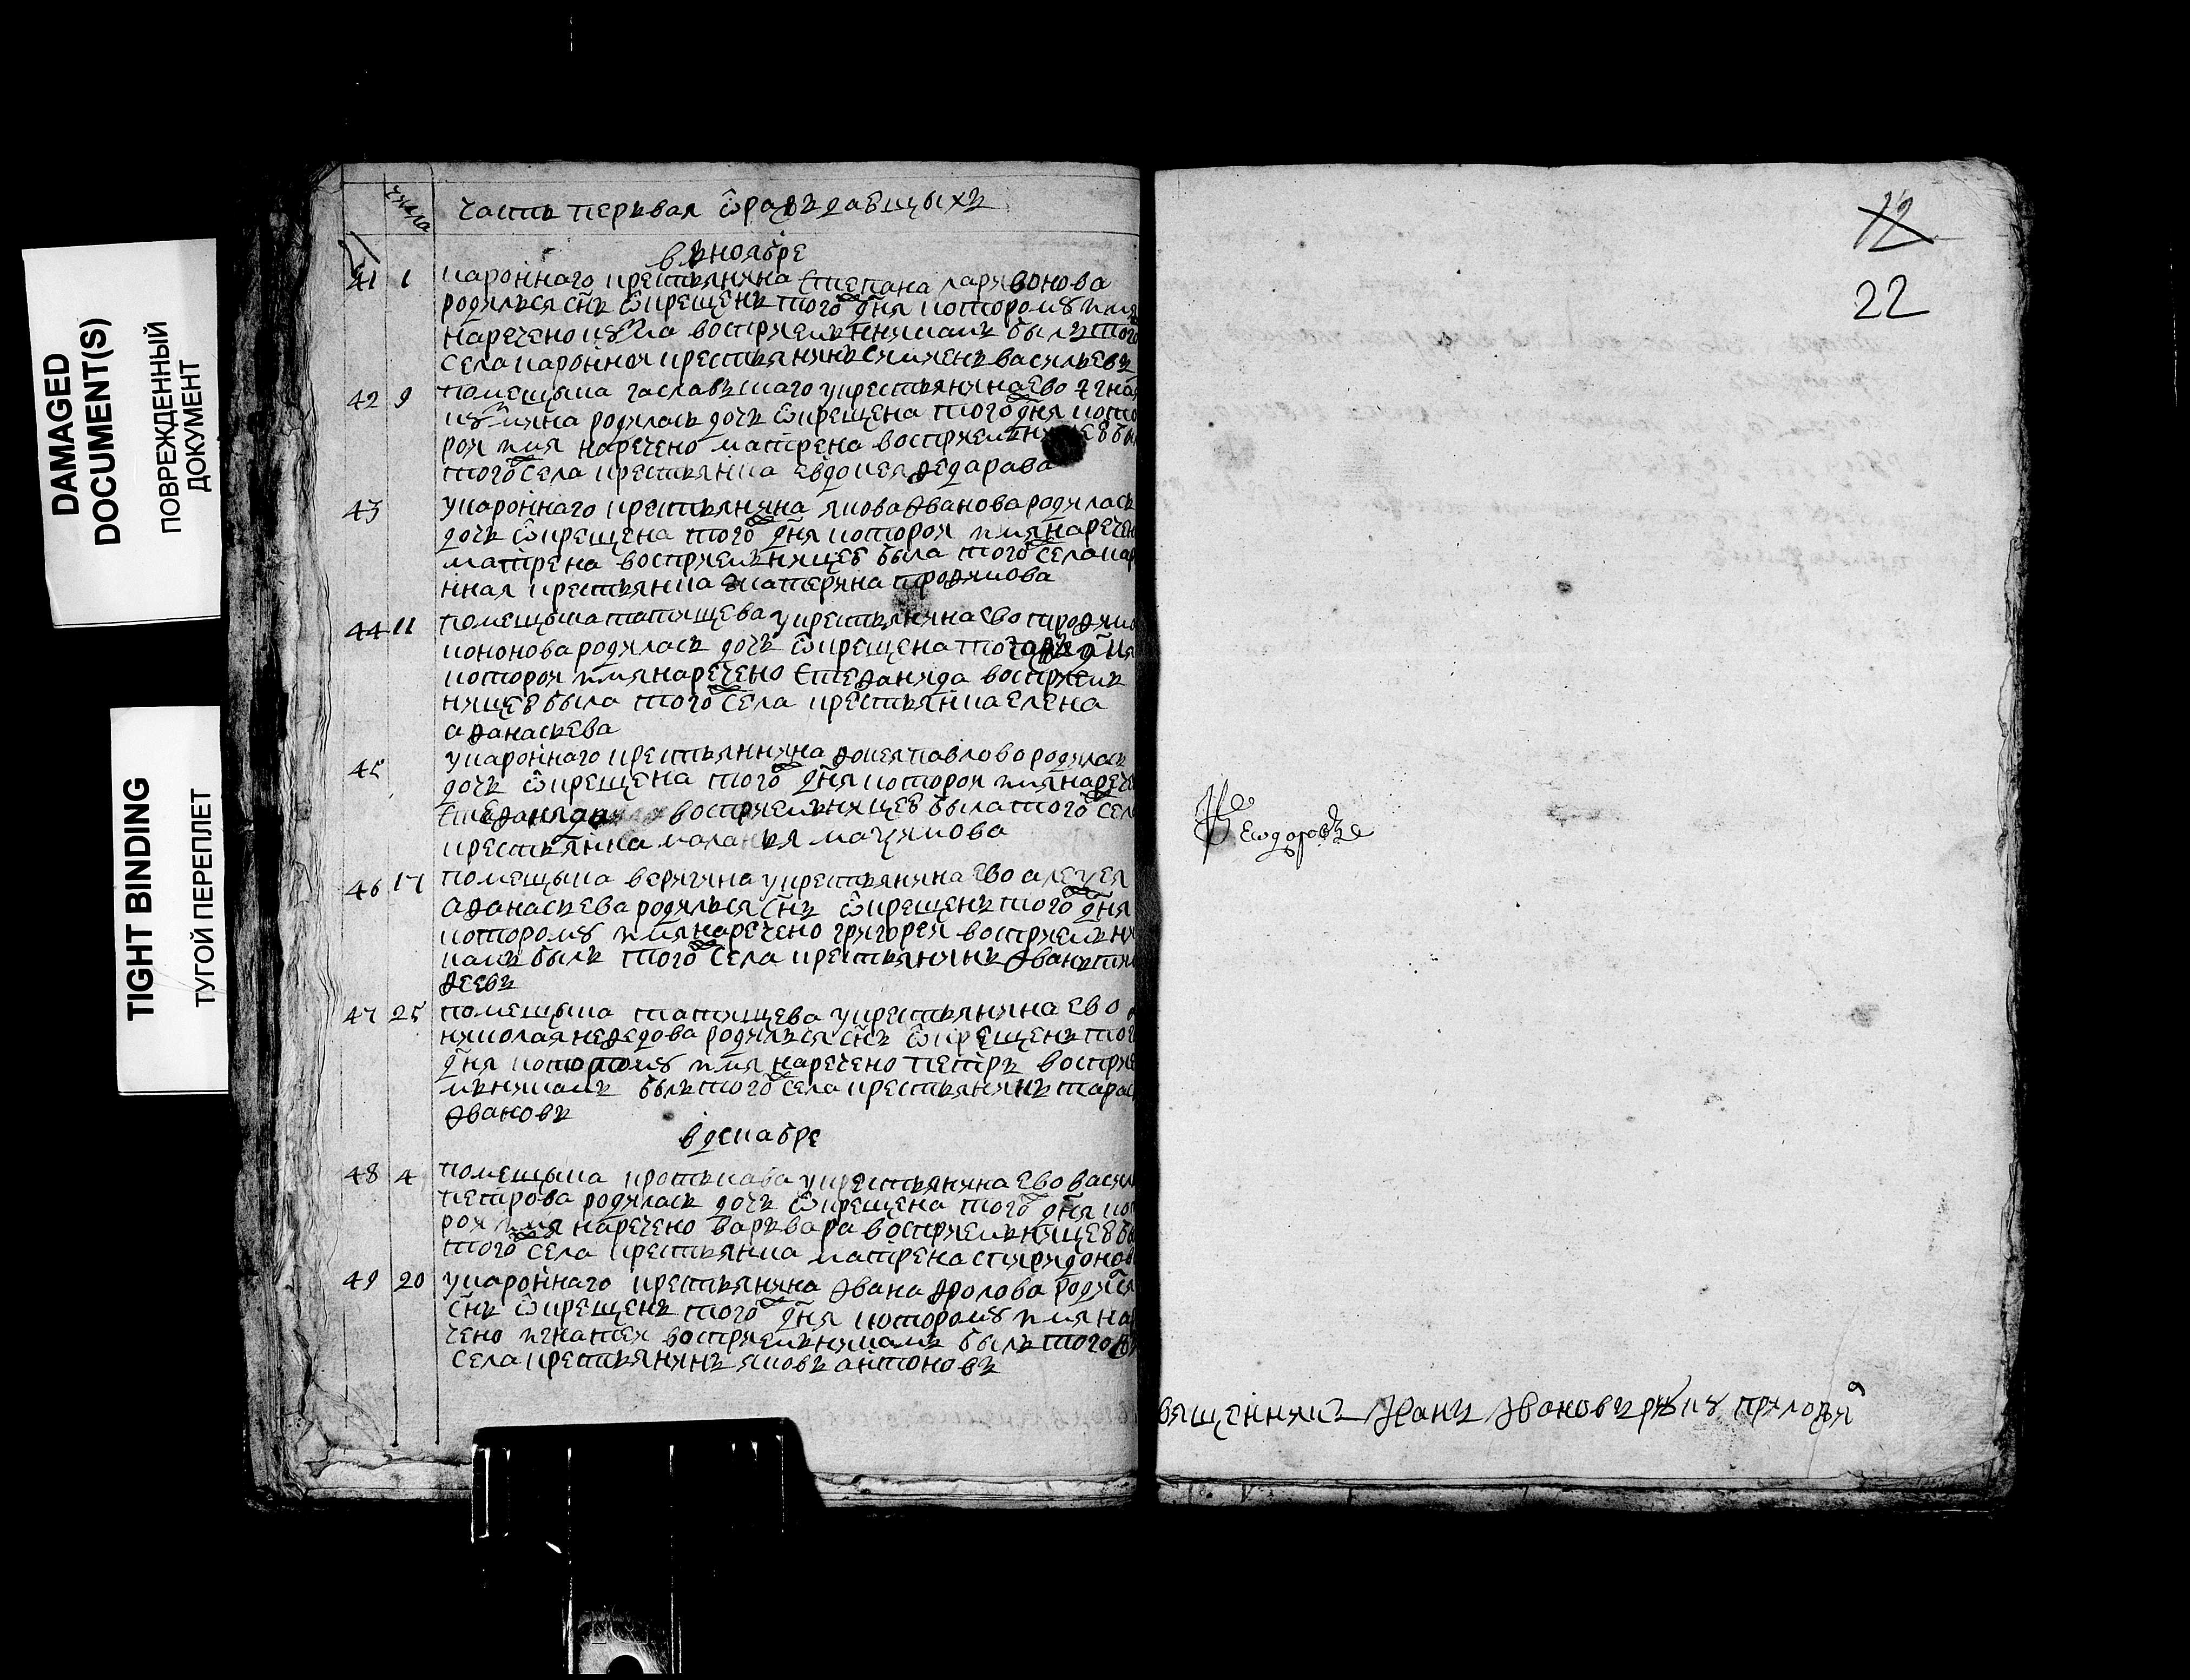 DAMAGED
DOCUMENT(S)
ПОВРЕЖДЕННЫЙ
ДОКУМЕНТ
TIGHT BINDING
ТУГОЙ ПЕРЕПЛЕТ
числа
часть перьвая ѡ раждаещыхъ
в ноябре
41 1 каронного крестьянина Степана Ларивонова
родилься снъ ѡ крещенъ того дня которомꙋ имя
наречено кꙋ ма восприемьникамъ былъ того
села каронной крестьянинъ Симиенъ Васильевъ
42 9 помещыка крестьянина ево
родилась дочь ѡ крещена того дня кото
рои имя наречено матрена восприемьн
того села крестьянка Евдокея Федарава
43 у каронного крестьянина Якова Иванова родилась
дочь ѡ крещена того дня которои имя наречен
матрена восприемьницею была того села кар
нная крестьянка Екатерина Трофимова
44 11 помещыка Татищева у крестьянина ево Трофим
Кононова родилась дочь ѡ крещена дня
которои имя наречено Стефанида восприемь
ницею была того села крестьянка Елена
Афанасьева
45 у каронного крестьяннина Фокея Павлово родилась
дочь ѡ крещена того дня которои имя нарече
Стефанида восприемьницею была того села
крестьянка Маланья Мачимова
46 17 помещыка Веригина у крестьянина ево Алечея
Афанасьева родилься снъ ѡ крещенъ того дня
которомꙋ имя наречено григорей восприемьни
камъ былъ того села крестьянинъ Иванъ Тим
феевъ
47 25 помещыка Татищева у крестьянина ево
Николая Нефедова родилься снъ ѡ крещенъ того
дня которомꙋ имя наречено петръ восприе
мьникамъ былъ того села крестьянинъ Тарас
Ивановъ
в декабре
48 4 помещыка Кроткава у крестьянина ево Васил
Петрова родилась дочь ѡ крещена того дня кот
рои имя наречено варьвара восприемьницею бы
того села крестьянка Матрена Спиридонов
49 20 у каронного крестьянина Ивана Фролова родился
снъ ѡ крещенъ того дня которомꙋ имя на
чено игнатеи восприемьникамъ былъ того
села крестьянинъ Яковъ Антоновъ
12
22
Ѳеодоровъ
вященникъ Иванъ Ивановъ рукꙋ приложи